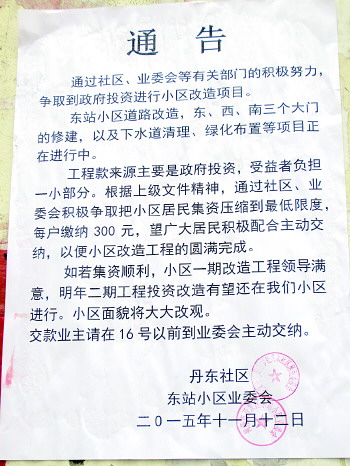 通 告
通过社区、业委会等有关部门的积极努力，
争取到政府投资进行小区改造项目。
东站小区道路改造，东、西、南三个大门
的修建，以及下水道清理、绿化布置等项目正
在进行中。
工程款来源主要是政府投资，受益者负担
一小部分。根据上级文件精神，通过社区、业
委会积极争取把小区居民集资压缩到最低限度，
每户缴纳 300 元，望广大居民积极配合主动交
纳，以便小区改造工程的圆满完成。
如若集资顺利，小区一期改造工程领导满
意，明年二期工程投资改造有望还在我们小区
进行。小区面貌将大大改观。
交款业主请在 16 号以前到业委会主动交纳。
丹东社区
东站小区业委会
二〇一五年十一月十二日